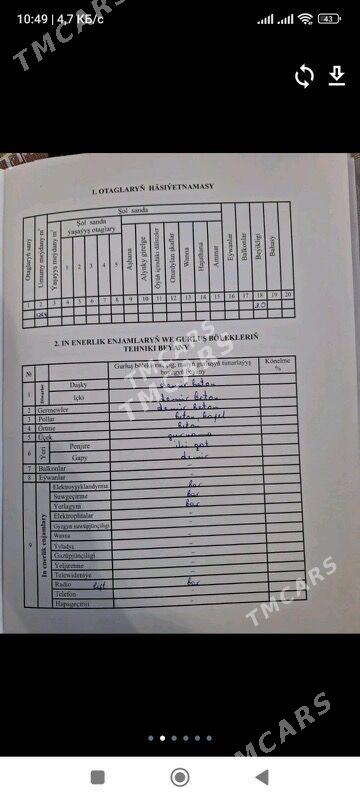 10:49 | 4,7 КБ/с
43
TMCARS
1. OTAGLARYŇ HÄSIÝETNAMASY
Otaglaryň sany
Umumy meýdany m²
Ýaşaýyş meýdany m²
Şol sanda
Şol sanda ýaşaýyş otaglary
1 2 3 4 5
Aşhana
Alynky girelge
Öýüň içindäki dälizler
Oturdylan şkaflar
Wanna
Hajathana
Ammar
Eýwanlar
Balkonlar
Beýikligi
Bahasy
1 2 3 4 5 6 7 8 9 10 11 12 13 14 15 16 17 18 19 20
3.0
TMCARS
2. IN ENERLIK ENJAMLARYŇ WE GURLUŞ BÖLEKLERIŇ
TEHNIKI BEÝANY
№
Könelme %
1 Daşky demir beton
Içki demir beton
2 Germewler demir beton
3 Pollar beton, kafel
4 Örtme beton
5 Üçek
6 Ýeri Penjire iki gat
Gapy demir
7 Balkonlar -
8 Eýwanlar -
9 In enerlik enjamlary
Elektroýyklandyrma bar
Suwgeçirme bar
Ýerlagym bar
Elektroplitalar -
Gyzgyn suwüpjünçiligi -
Wanna -
Ýyladyş -
Gazüpjünçiligi -
Ýeljiretme -
Telewideniýe -
Radio lift bar
Telefon -
Hapageçiriji -
TMCARS
TMCARS
TMCARS